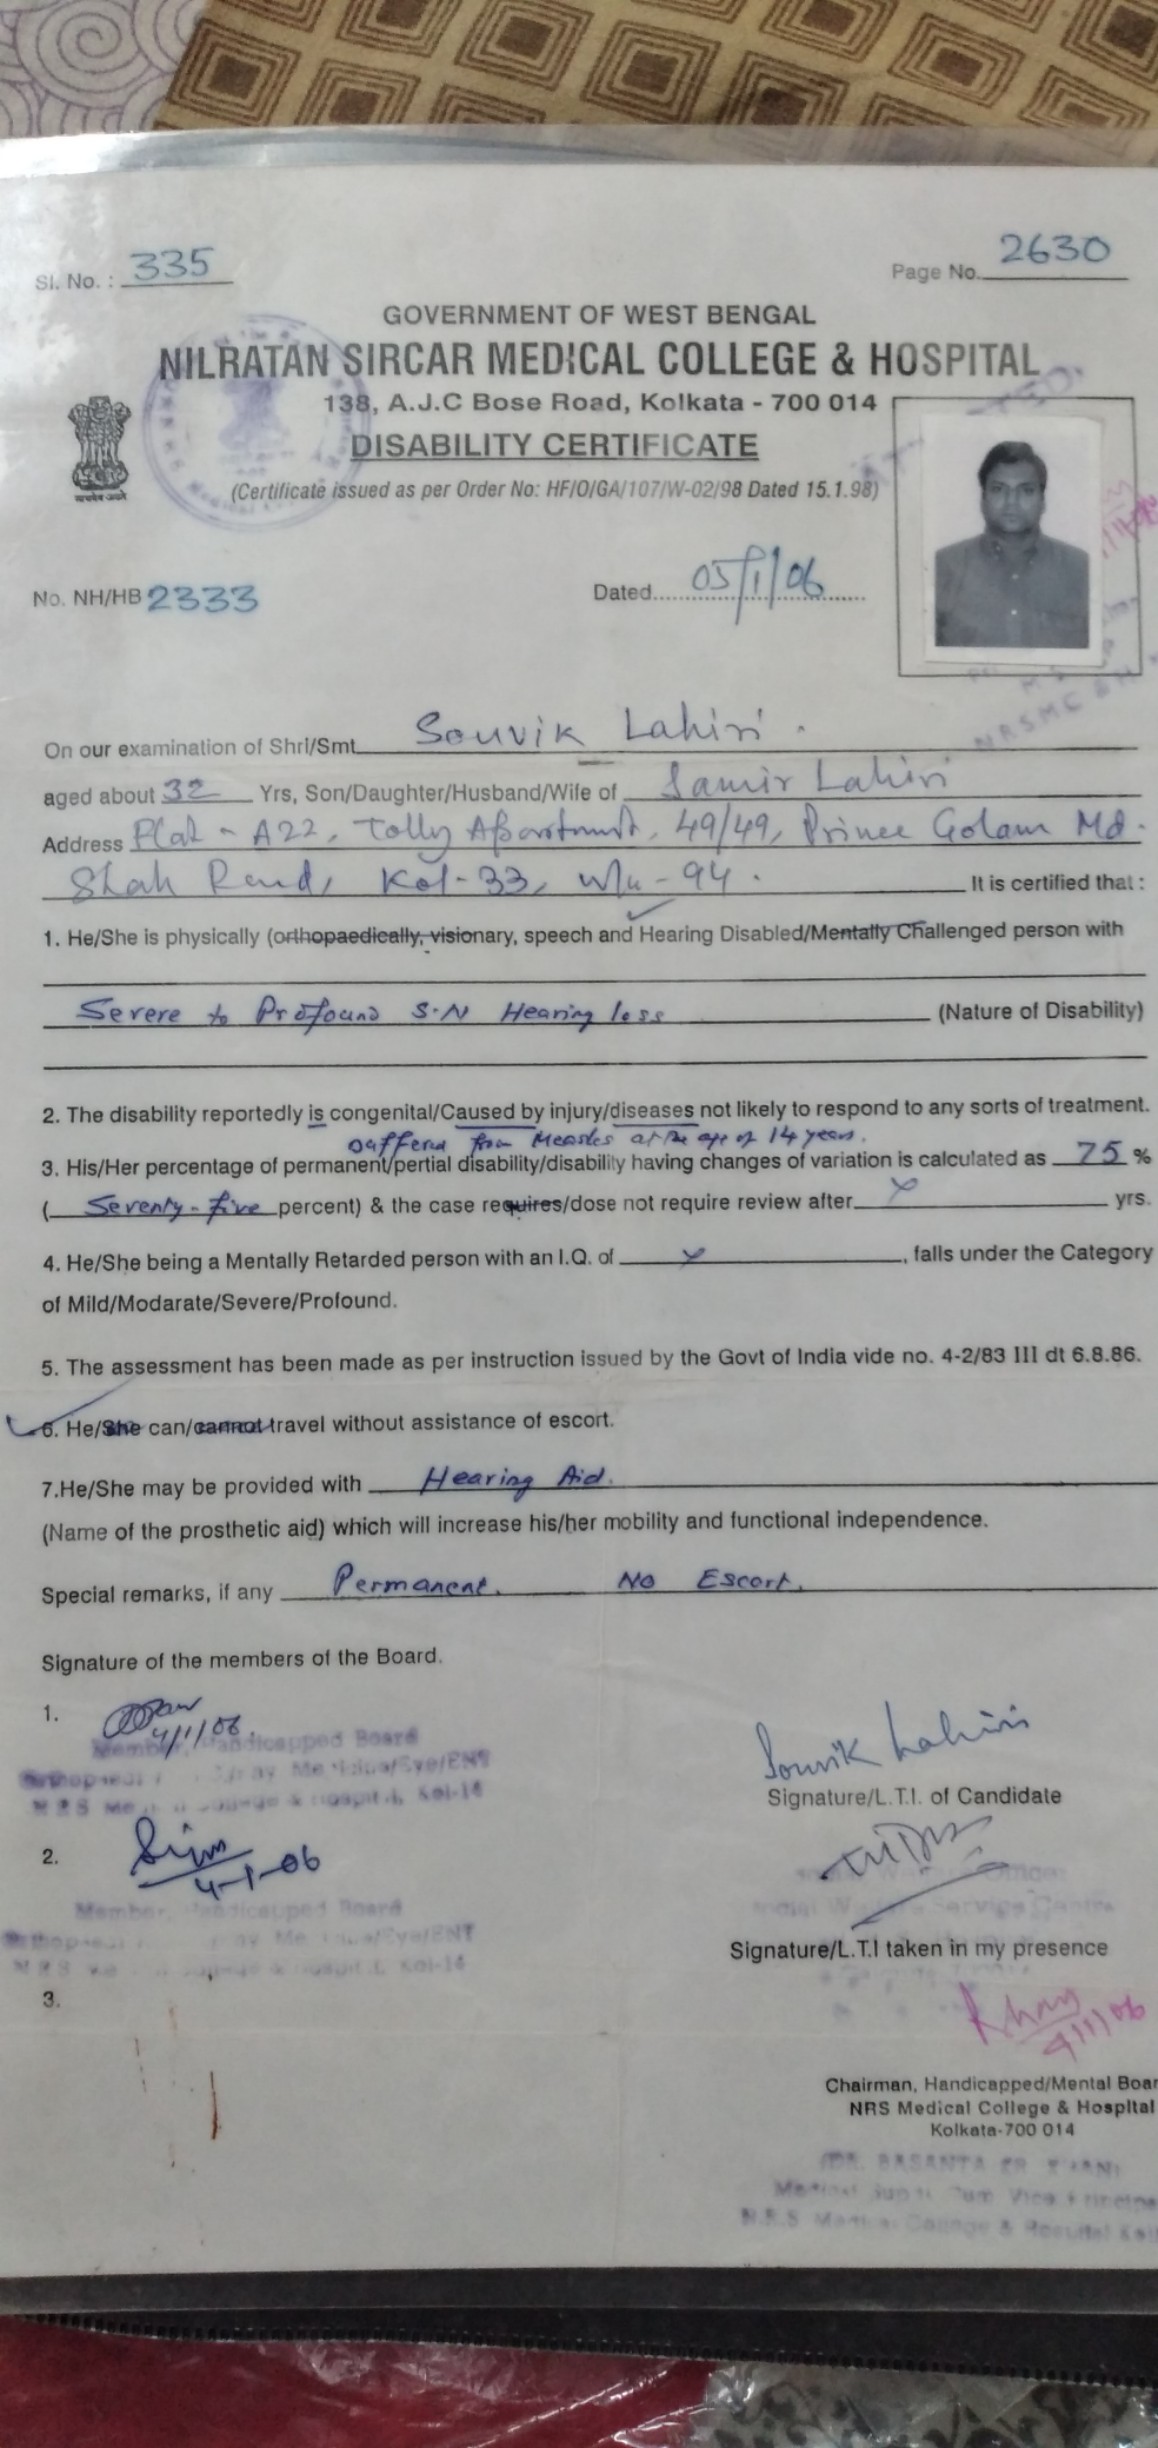 Sl. No. : 335
Page No. 2630
GOVERNMENT OF WEST BENGAL
NILRATAN SIRCAR MEDICAL COLLEGE & HOSPITAL
138, A.J.C Bose Road, Kolkata - 700 014
DISABILITY CERTIFICATE
(Certificate issued as per Order No: HF/O/GA/107/W-02/98 Dated 15.1.98)
सत्यमेव जयते
No. NH/HB 2333
Dated 05/1/06
On our examination of Shri/Smt. Souvik Lahiri.
aged about 32 Yrs, Son/Daughter/Husband/Wife of Samir Lahiri
Address Flat - A22, Tolly Apartment, 49/49, Prince Golam Md.
Shah Road, Kol-33, W/n-94. It is certified that :
1. He/She is physically (orthopaedically, visionary, speech and Hearing Disabled/Mentally Challenged person with
Severe to Profound S.N Hearing loss (Nature of Disability)
2. The disability reportedly is congenital/Caused by injury/diseases not likely to respond to any sorts of treatment.
Suffered from Measles at the age of 14 years.
3. His/Her percentage of permanent/pertial disability/disability having changes of variation is calculated as 75 %
( Seventy-five percent) & the case requires/dose not require review after x yrs.
4. He/She being a Mentally Retarded person with an I.Q. of x, falls under the Category
of Mild/Modarate/Severe/Profound.
5. The assessment has been made as per instruction issued by the Govt of India vide no. 4-2/83 III dt 6.8.86.
6. He/She can/cannot travel without assistance of escort.
7.He/She may be provided with Hearing Aid.
(Name of the prosthetic aid) which will increase his/her mobility and functional independence.
Special remarks, if any Permanent. No Escort.
Signature of the members of the Board.
1.
4/1/06.
Member, Handicapped Board
Medicine/Eye/ENT
College & Hospital, Kol-14
Souvik Lahiri
Signature/L.T.I. of Candidate
2.
4-1-06
Member, Handicapped Board
Eye/ENT
Kol-14
Signature/L.T.I taken in my presence
3.
Khan
4/1/06
Chairman, Handicapped/Mental Boar
NRS Medical College & Hospital
Kolkata-700 014
(DR. BASANTA KR. KHAN)
N.R.S Medical College & Hospital